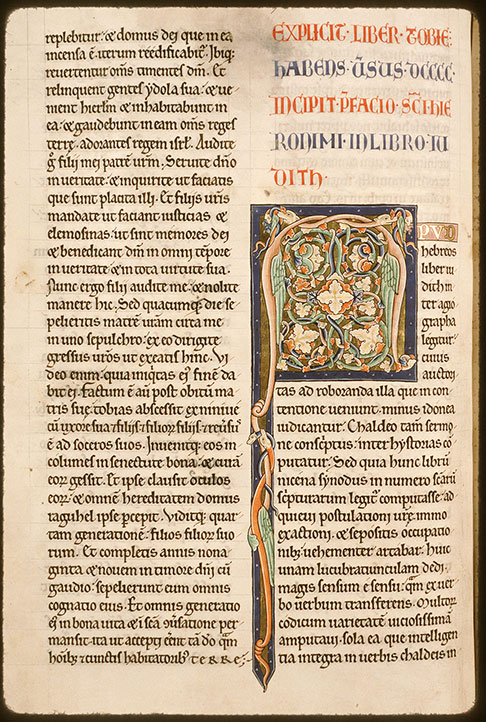 replebitur· & domus dei que in ea
incensa ē· iterum reedificabit᷑. Ibiq;
reuertentur om̄s timentes dm̄. Et
relinquent gentes ydola sua· & ue-
nient hierl̄m & inhabitabunt in
ea· & gaudebunt in eam om̄s reges
terre· adorantes regem isrl̄. Audite
g̊ filii mei patrē ur̄m. Seruite dn̄o
in ueritate· & inquirite ut faciatis
que sunt placita illi. Et filiis ur̄is
mandate ut faciant iusticias &
elemosinas· ut sint memores dei
& benedicant dm̄ in omni tēpore
in ueritate & in tota uirtute sua.
Nunc ergo filii audite me· & nolite
manere hic. Sed quacumq; die se-
pelieritis matrē urām circa me
in uno sepulchro· ex eo dirigite
gressus ur̄os ut exeatis hinc. Vi
deo enim· quia iniq̇tas eı᷒ finē da
bit ei. Factum ē aū post obitū ma
tris sue· tobias abscessit ex niniue
cū uxore sua
ē ad soceros suos. Inuenitq; eos in
columes in senectute bona· & curā
eorꝝ gessit. Et ipse clausit oculos
eorꝝ· & omnē hereditatem domus
raguhel ipse p̄cepit. Viditq; quar
tam generationē· filios filiorꝝ suo
rum. Et completis annis nona
ginta & nouem in timore dn̄i cū
gaudio· sepelierunt eum omnis
cognatio eius. Et omnis generatio
eı᷒ in bona uita & ı̄ sc̄a ꝯuersatione per
mansit· ita ut accepti eēnt tā dō q̄m
hoı̄ib; & cunctis habitatorib; terre·
EXPLICIT· LIBER· TOBIE·
HABENS· V̄SUS· DCCCC·
INCIPIT· P̄FACIO· SC̄I· HIE
RONIMI· IN LIBRO· IU
DITH·
A PUD
hebreos
liber iu
dith in
ter agio
grapha
legitur·
cuius
auctori-
tas ad roboranda illa que in con-
tentione ueniunt· minus idonea
iudicantur. Chaldeo tam̄ sermo
ne conscptus· inter hystorias cō
putatur. Sed quia hunc librū
nicena synodus in numero sc̄arū
scpturarum legit᷑ computasse· ad
quieui postulationi ur̄e· immo
exactioni· & sepositis occupatio
nib; uehementer artabar. Huic
unam lucubratiunculam dedi·
magis sensum e sensu· q̄m ex uer-
bo uerbum transferens. Multorꝝ
codicum uarietatē uiciosissimā
amputaui· sola ea· que intelligen
tia integra in uerbis chaldeis in